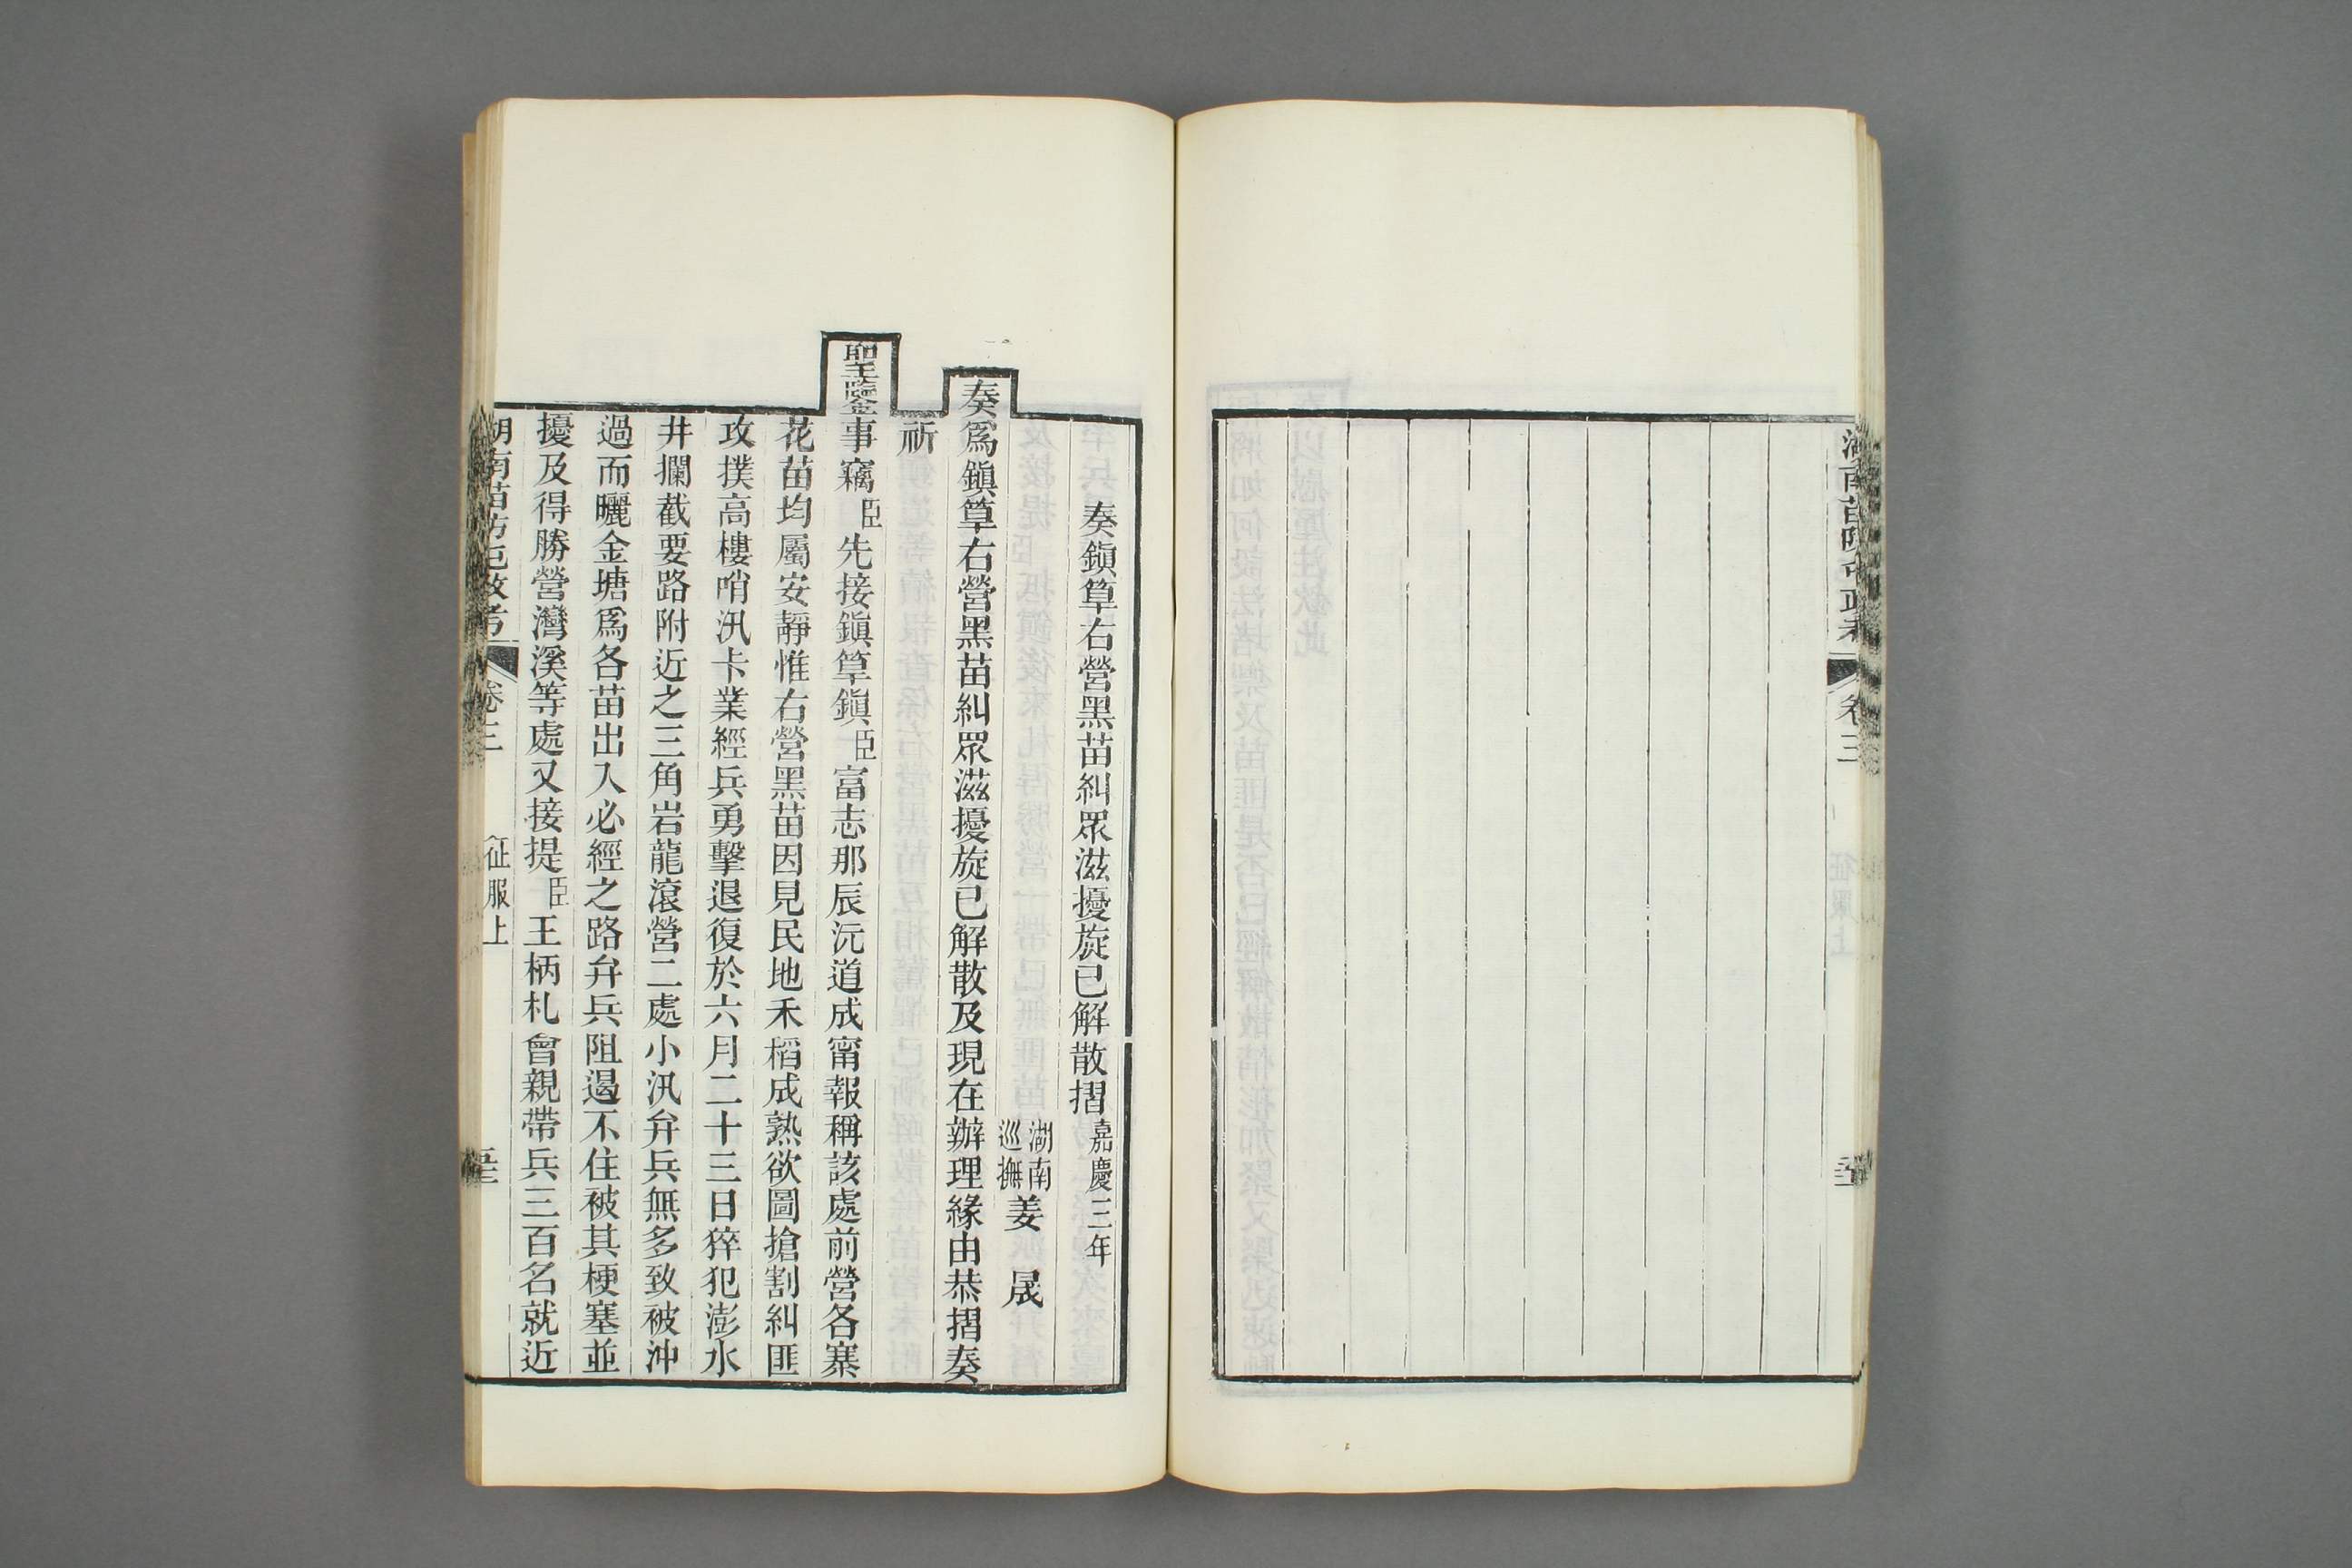 湖南苗防屯政考
卷三
奏鎭筸右營黑苗糾眾滋擾旋已解散摺 嘉慶三年
湖南巡撫 姜 晟
奏爲鎭筸右營黑苗糾眾滋擾旋已解散及現在辦理緣由恭摺奏
祈
聖鑒事竊臣先接鎭筸鎭臣富志那辰沅道成甯報稱該處前營各寨
花苗均屬安靜惟右營黑苗因見民地禾稻成熟欲圖搶割糾匪
攻撲高樓哨汛卡業經兵勇擊退復於六月二十三日猝犯澎水
井攔截要路附近之三角岩龍滾營二處小汛弁兵無多致被沖
過而曬金塘爲各苗出入必經之路弁兵阻遏不住被其梗塞並
擾及得勝營灣溪等處又接提臣王柄札會親帶兵三百名就近
湖南苗防屯政考
卷三
征服上